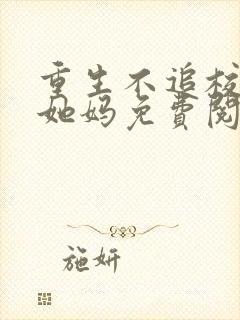 重生不追校
她妈免費閱
施妍